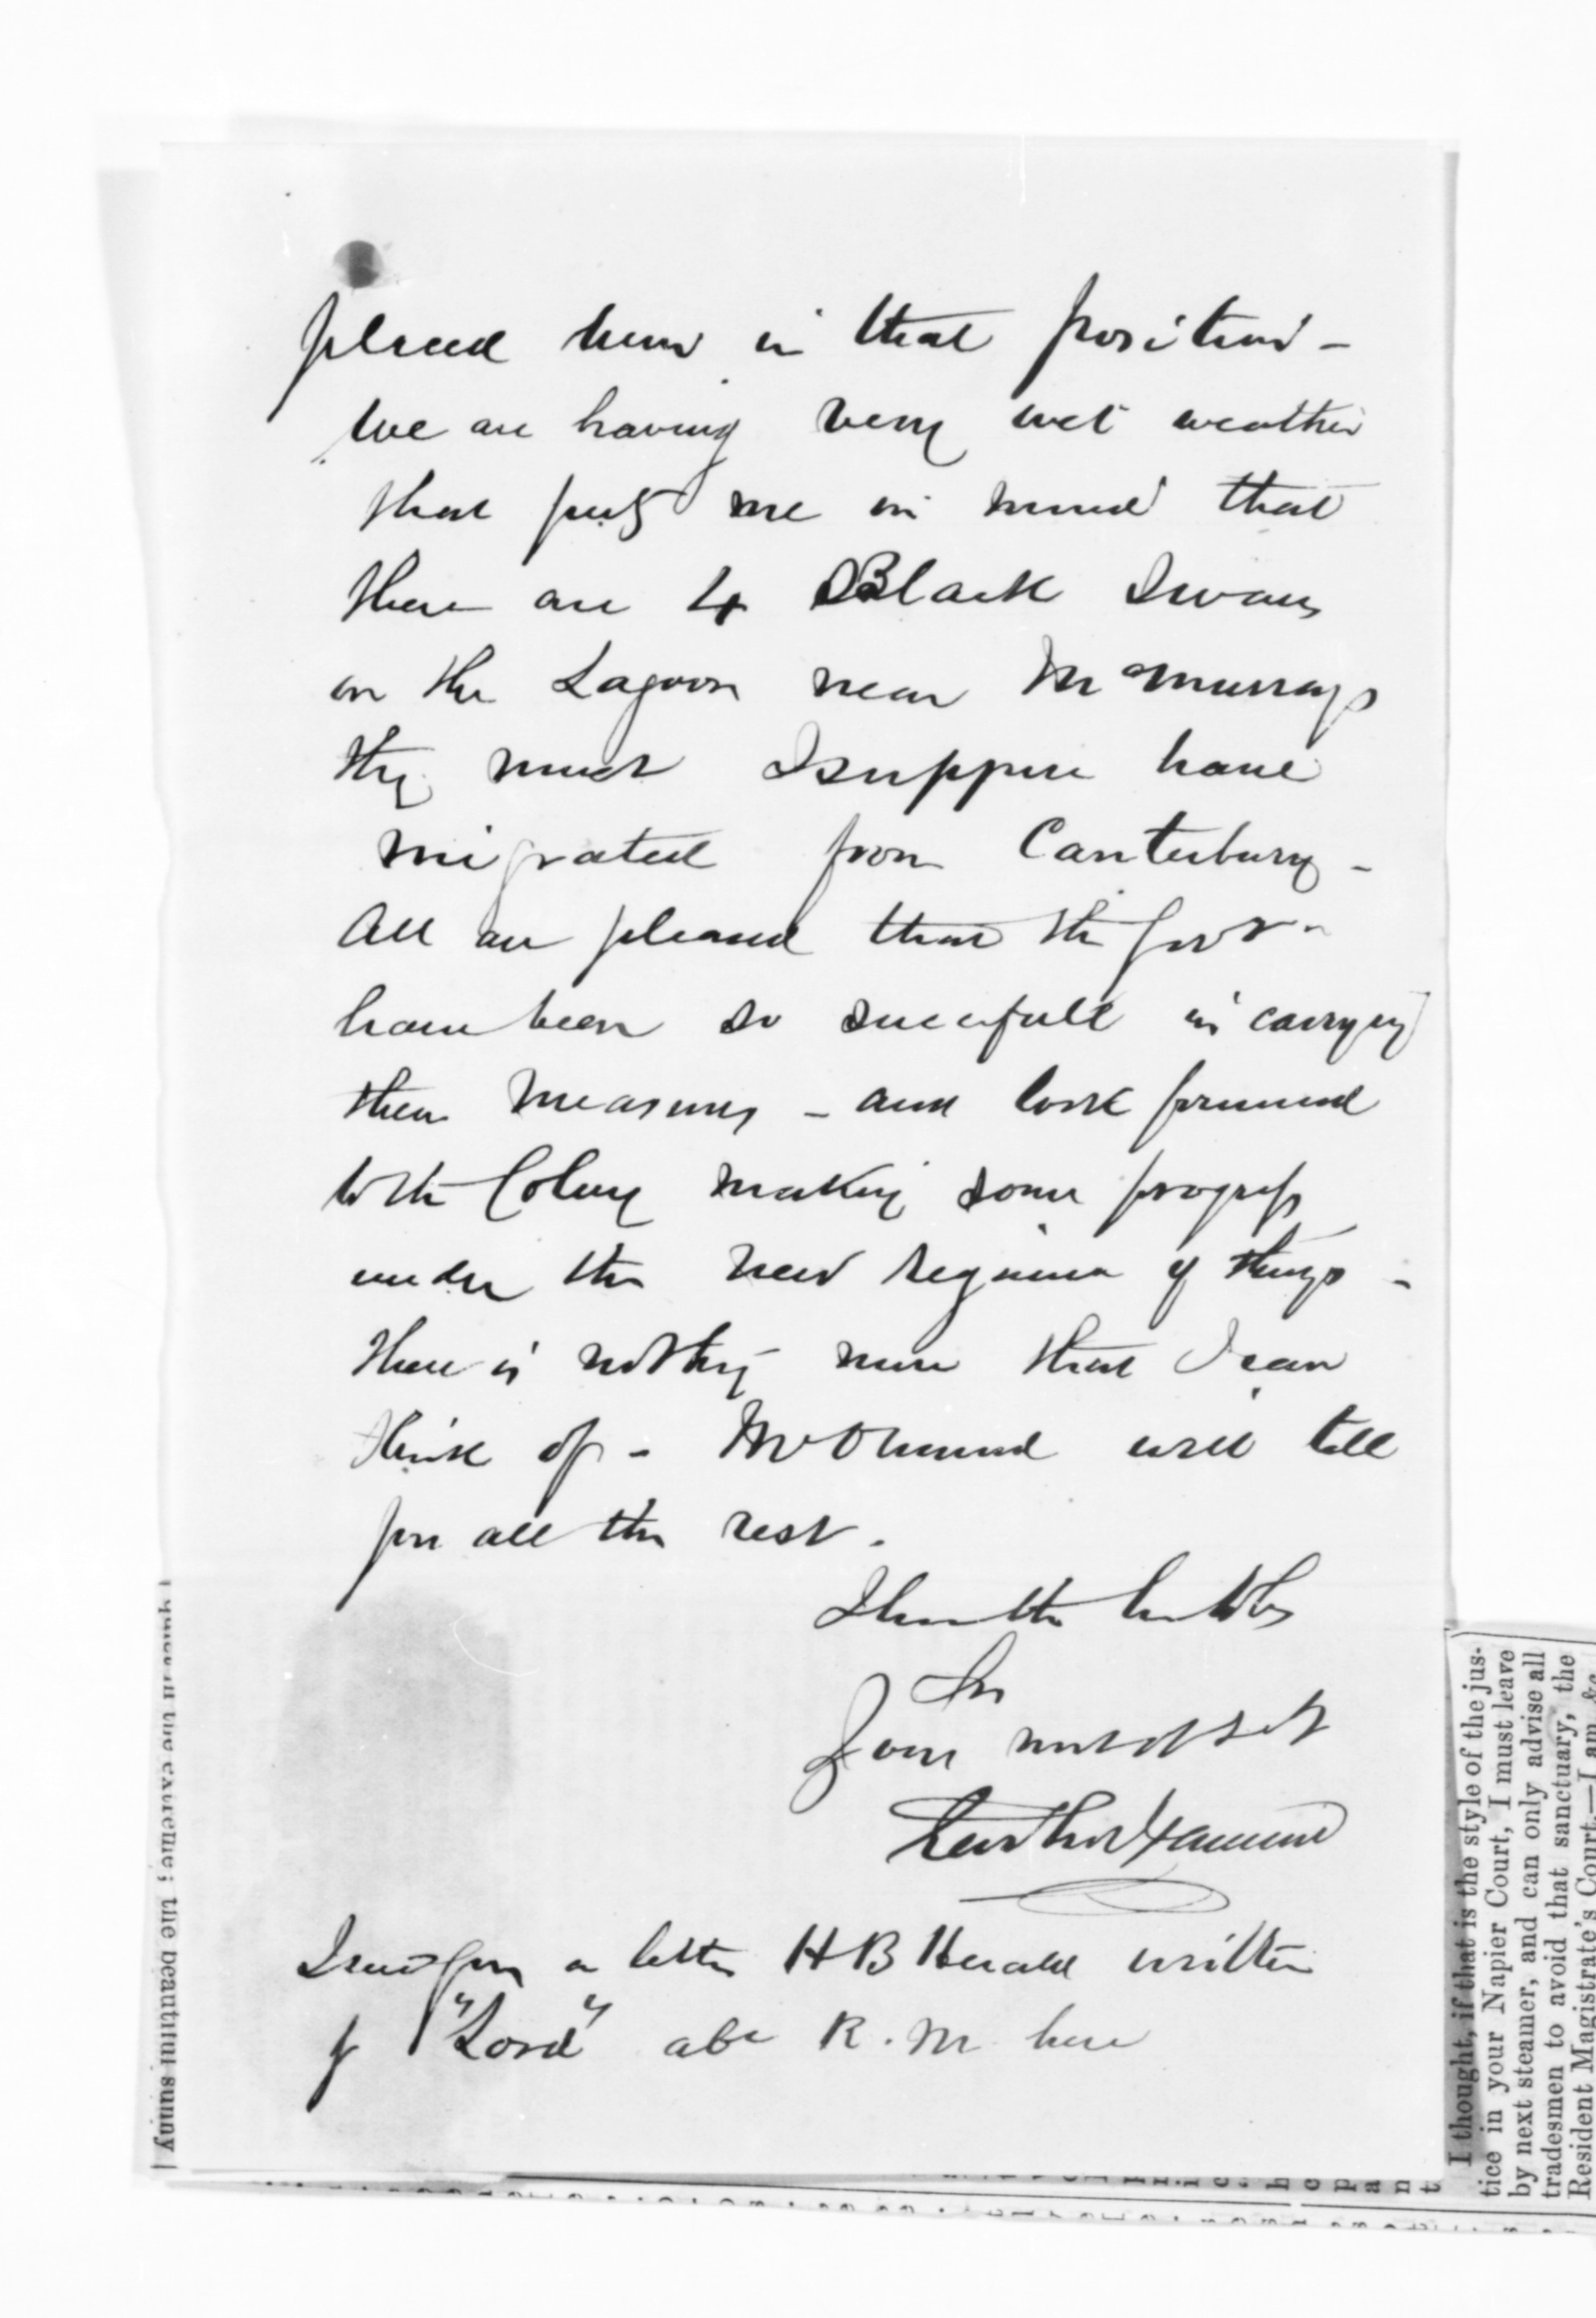 placed him in that position -
We are having very wet weather
that puts me in mind that
there are 4 Black Swans
on the Lagoon near Mr Murrays
they must I suppose have
migrated from Canterbury -
All are pleased that the Govt
have been so succesfull in carrying
their measures - and look forward
to the Colony making some progress
under the new regime of things -
There is nothing more that I can
think of - Mr Ormond will tell
you all the rest.
I have the honor to be
Sir
Your most obt st
I send you a letter HB Herald written
by "Lord" abt R.M. here
the extreme; the beautiful sunny
I thought, if that is the style of the jus-
tice in your Napier Court, I must leave
by next steamer, and can only advise all
tradesmen to avoid that sanctuary, the
Resident Magistrate's Court.—I am, &c